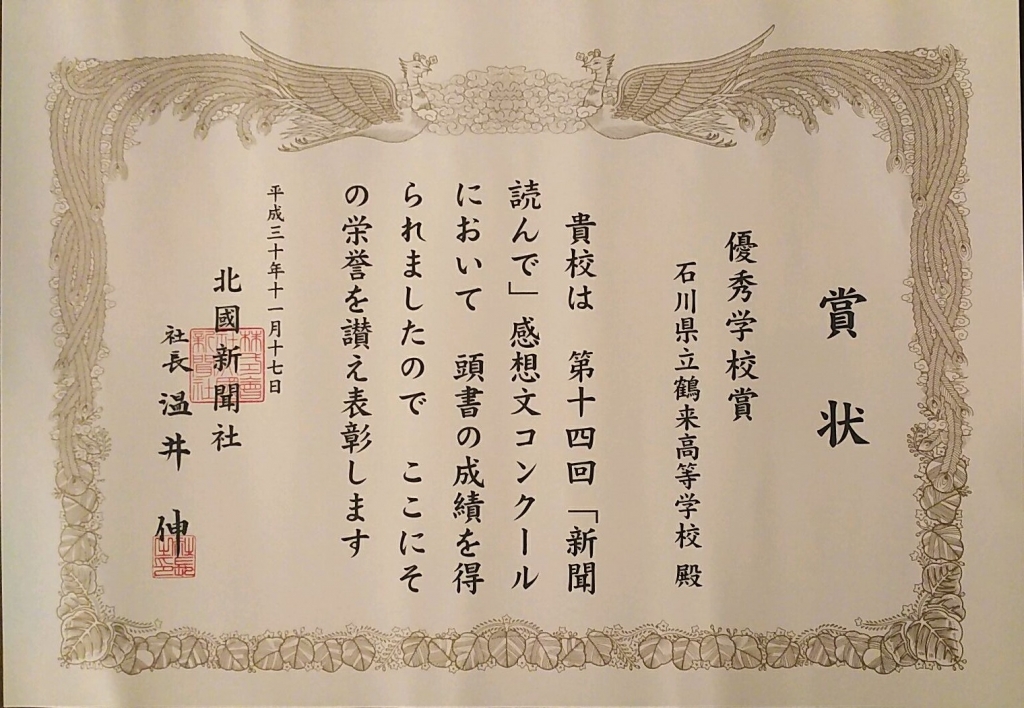 賞状
優秀学校賞
石川県立鶴来高等学校 殿
貴校は 第十四回「新聞
読んで」感想文コンクール
において 頭書の成績を得
られましたので ここにそ
の栄誉を讃え表彰します
平成三十年十一月十七日
北國新聞社
社長 温井 伸